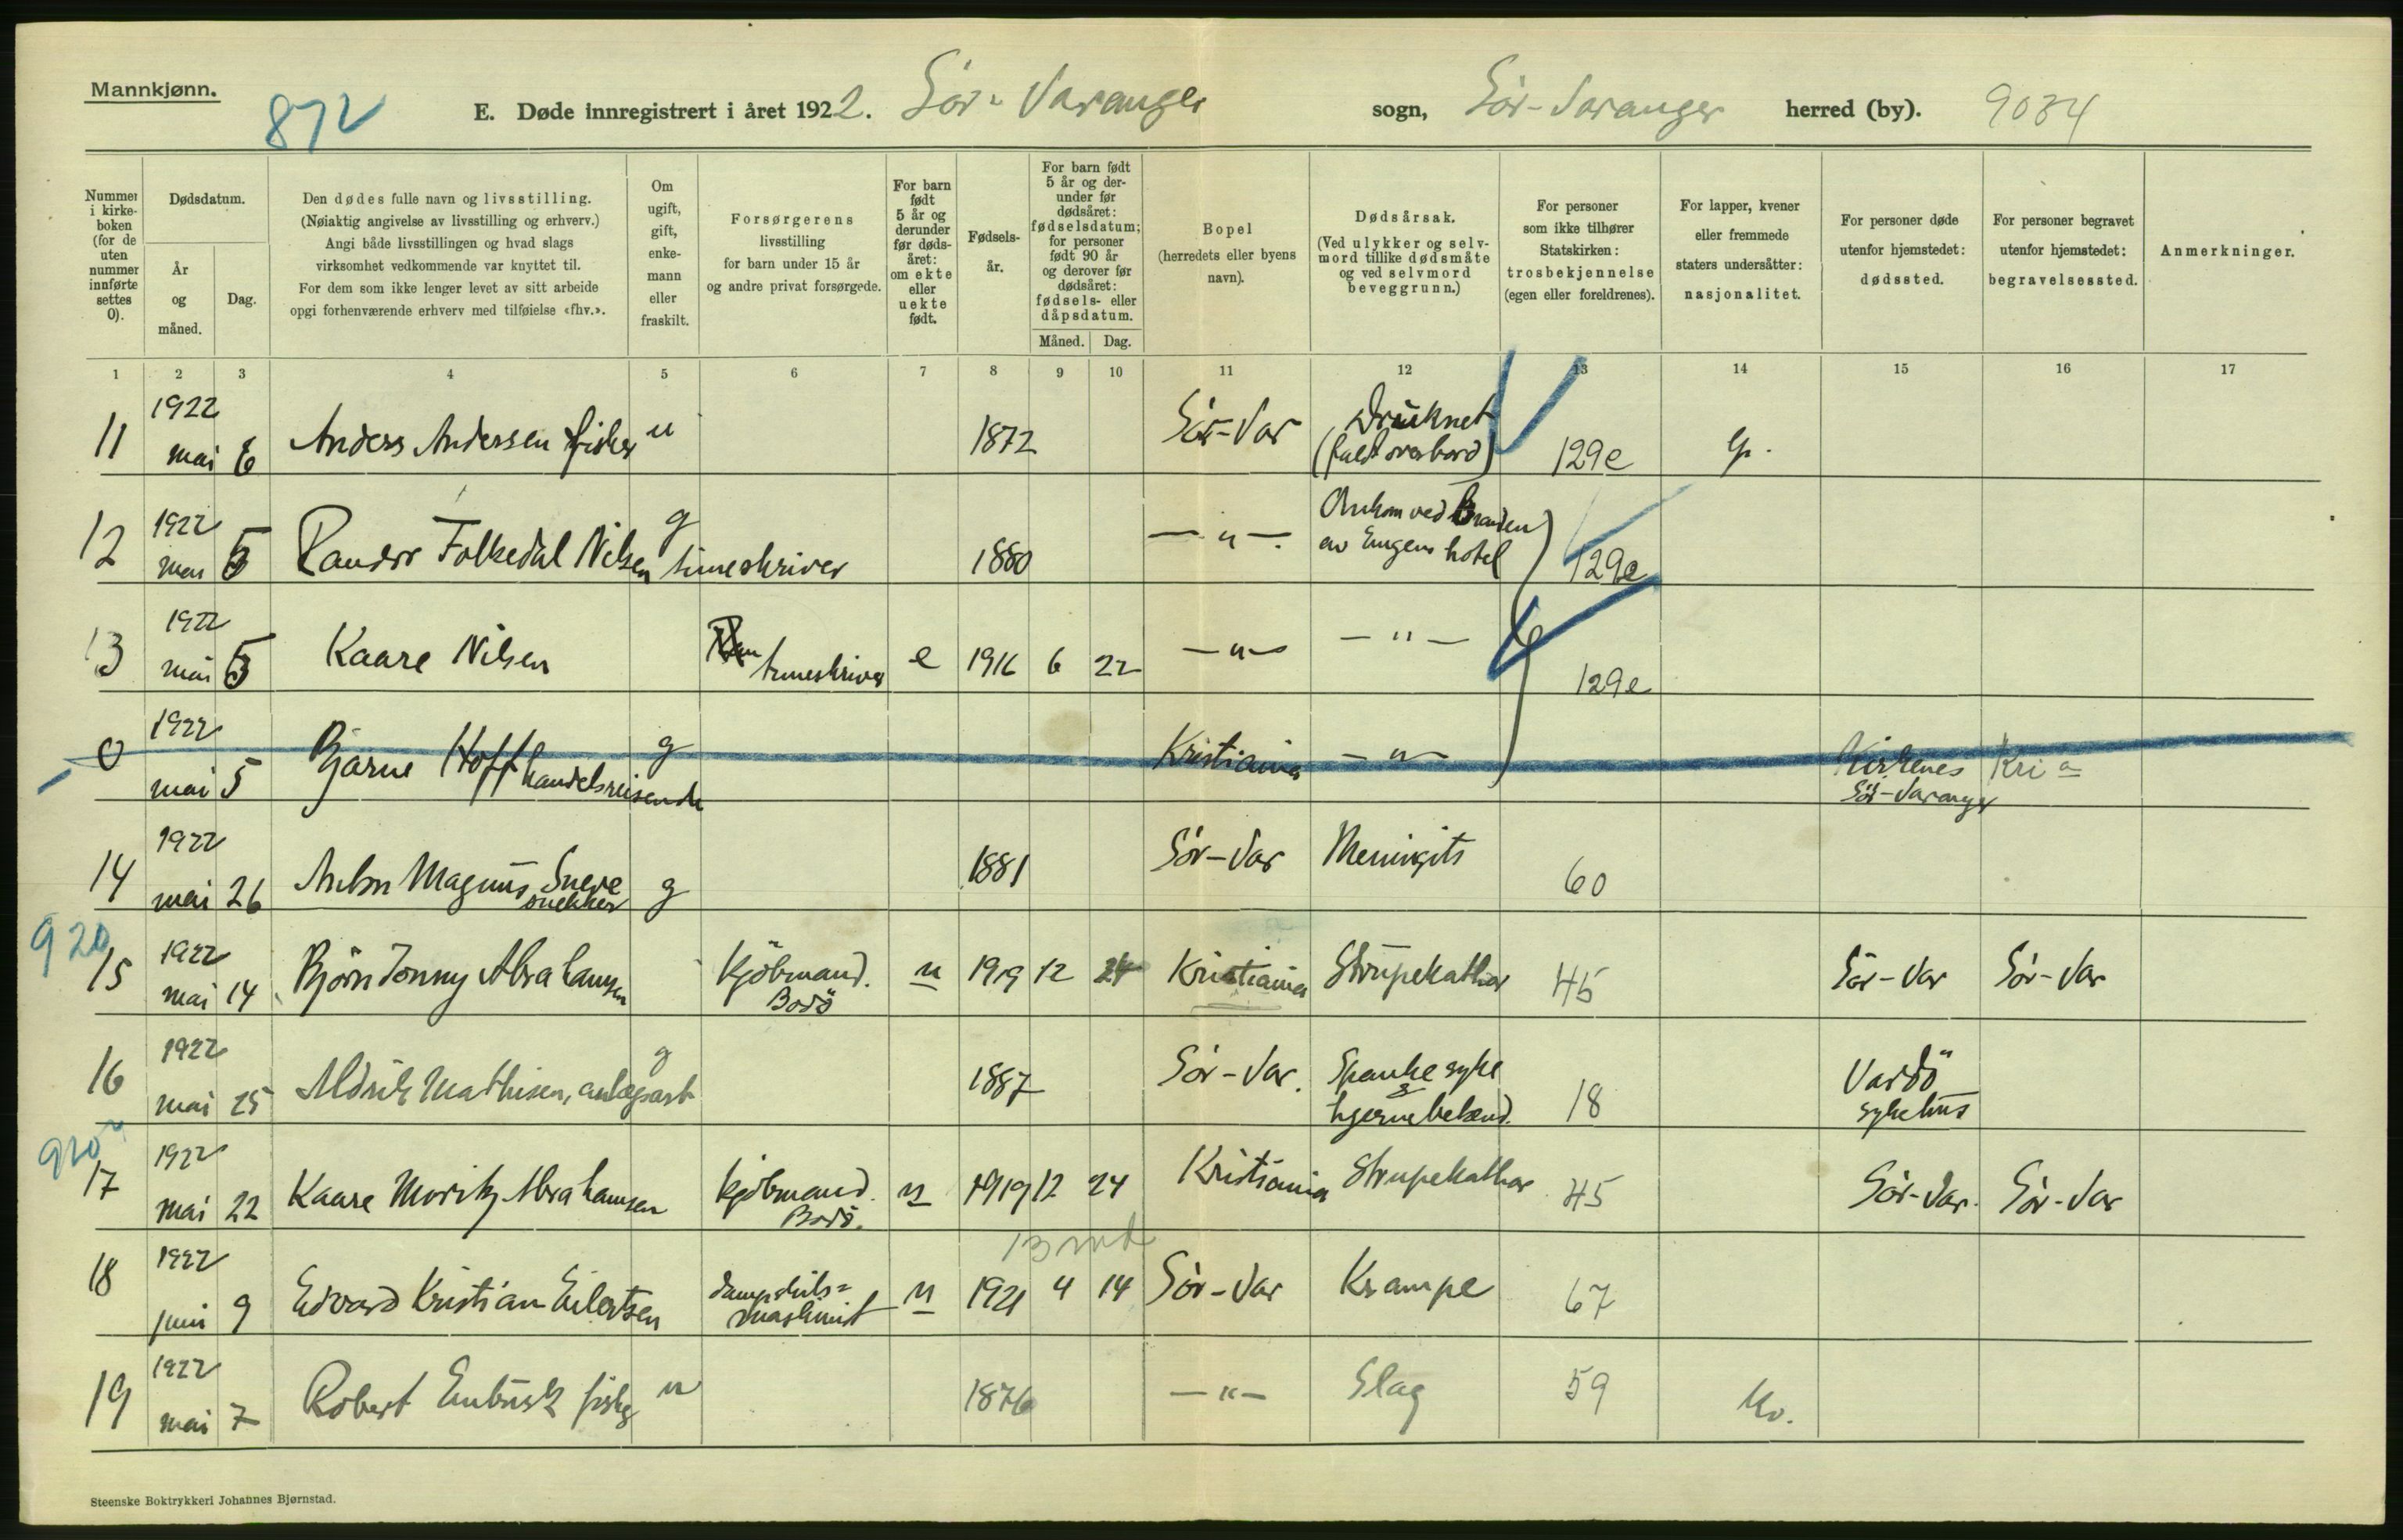 Mannkjønn.
872
E. Døde innregistrert i året 1922. Sör-Varanger sogn, Sör-Varanger herred (by). 9034
Nummer i kirkeboken (for de uten nummer innførte settes 0).
Dødsdatum.
År og måned.
Dag.
Den dødes fulle navn og livsstilling.
(Nøiaktig angivelse av livsstilling og erhverv.)
Angi både livsstillingen og hvad slags
virksomhet vedkommende var knyttet til.
For dem som ikke lenger levet av sitt arbeide
opgi forhenværende erhverv med tilføielse «fhv.».
Om ugift, gift, enkemann eller fraskilt.
Forsørgerens
livsstilling
for barn under 15 år
og andre privat forsørgede.
For barn født 5 år og derunder før dødsåret: om ekte eller uekte født.
Fødselsår.
For barn født 5 år og derunder før dødsåret: fødselsdatum; for personer født 90 år og derover før dødsåret: fødsels- eller dåpsdatum.
Måned. Dag.
Bopel
(herredets eller byens
navn).
Dødsårsak.
(Ved ulykker og selvmord tillike dødsmåte og ved selvmord beveggrunn.)
For personer
som ikke tilhører
Statskirken:
trosbekjennelse
(egen eller foreldrenes).
For lapper, kvener
eller fremmede
staters undersåtter:
nasjonalitet.
For personer døde
utenfor hjemstedet:
dødssted.
For personer begravet
utenfor hjemstedet:
begravelsessted.
Anmerkninger.
1 2 3 4 5 6 7 8 9 10 11 12 13 14 15 16 17
11 1922 mai 6 Anders Andersen fisker u 1872 Sör-Var Druknet (faldt overbord) 129e
12 1922 mai 5 Folkedal Nilsen g timeskriver 1880 — " — Omkom ved Branden av hotel 129e
13 1922 mai 5 Kaare Nilsen timeskriver e 1916 6 22 — " — — " — 129e
0 1922 mai 5 Bjarne Hoff handelsreisende g Kristiania — " — Kirkenes Sör-Varanger Kri a
14 1922 mai 26 Anton Magnus snekker g 1881 Sör-Var Meningits 60
920
15 1922 mai 14 Björn Jonny Abrahamsen Kjöbmand. Bodö u 1919 12 24 Kristiania Strupekathar 45 Sör-Var Sör-Var
16 1922 mai 25 Mathisen, anlægsarb g 1887 Sör-Var. Spanske syke & hjernebetænd. 18 Vardö sykehus
920
17 1922 mai 22 Kaare Moritz Abrahamsen Kjöbmand. Bodö. u 1919 12 24 Kristiania Strupekathar 45 Sör-Var. Sör-Var
13 md
18 1922 juni 9 Edvard Kristian Eilertsen dampskibs= maskinist u 1921 4 14 Sör-Var Krampe 67
19 1922 mai 7 Robert Enbusk fisker u 1876 — " — Slag 59 Kv.
Steenske Boktrykkeri Johannes Bjørnstad.